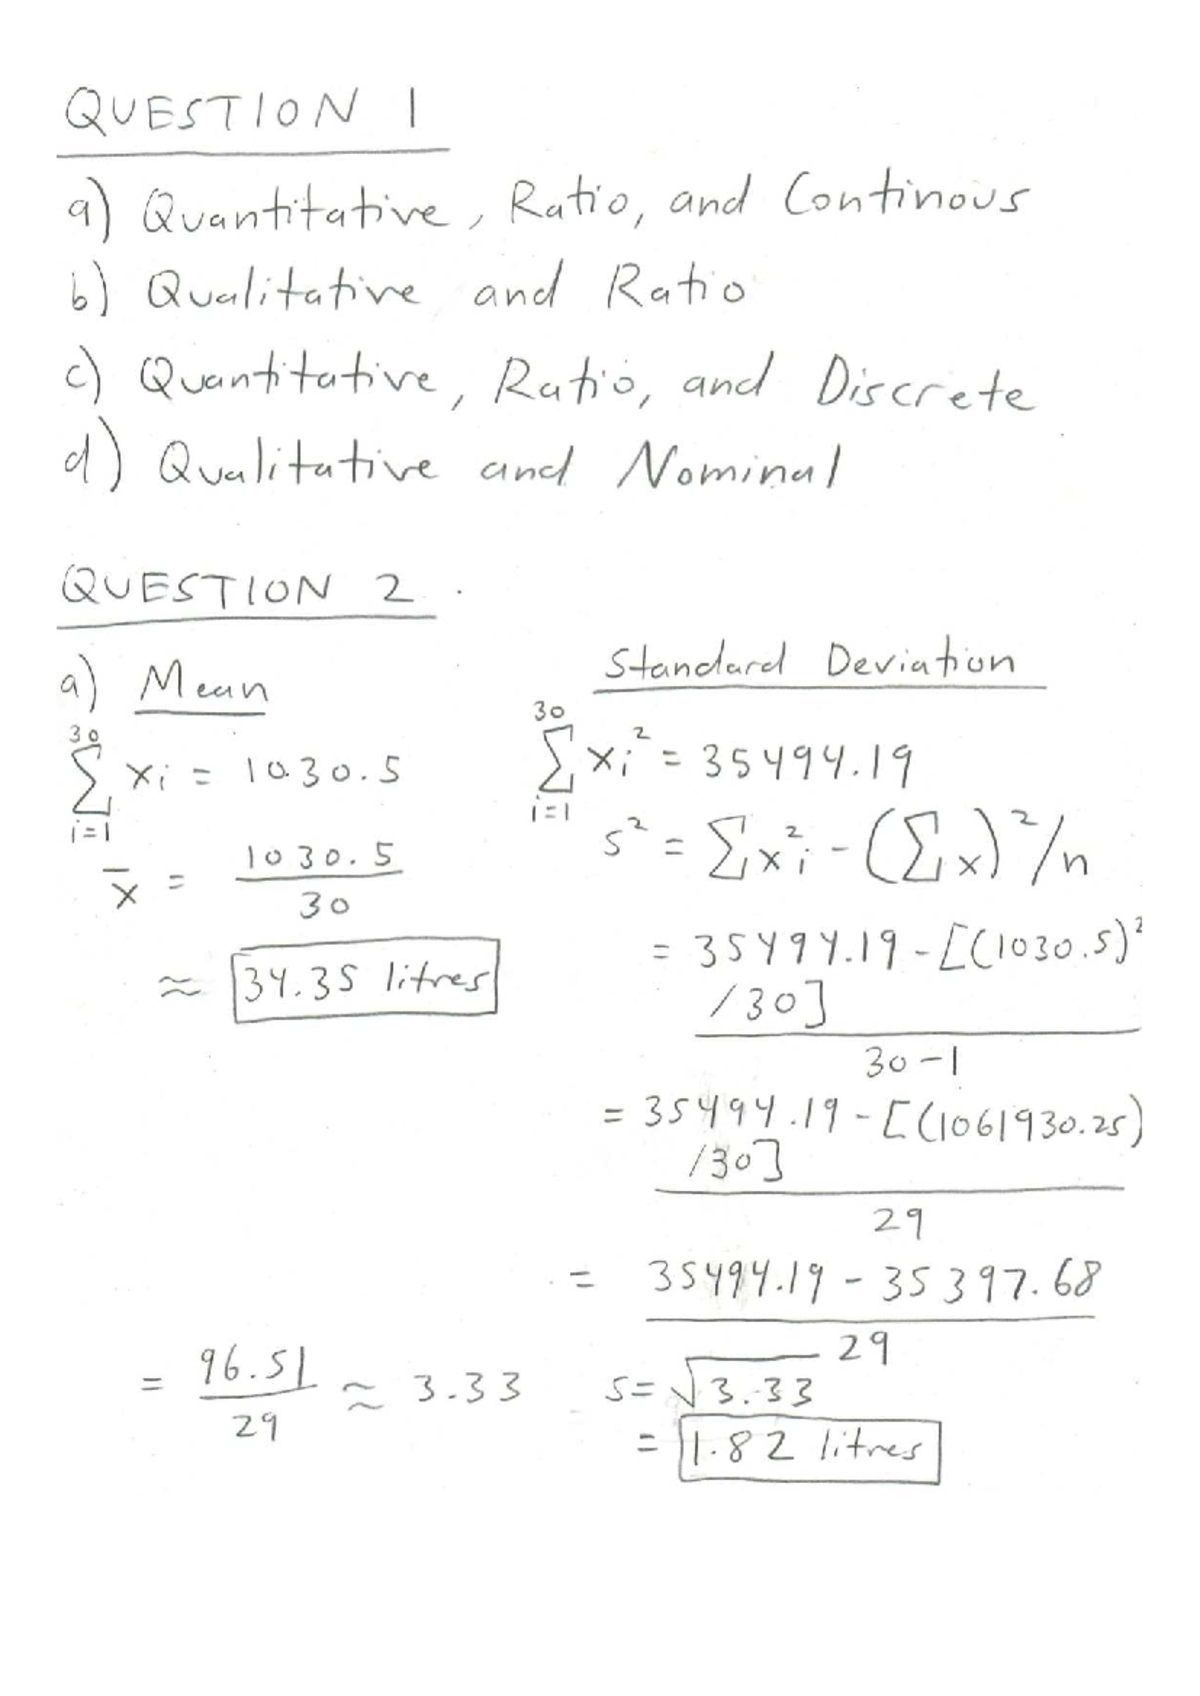 QUESTION 1
a) Quantitative, Ratio, and Continous
b) Qualitative and Ratio
c) Quantitative, Ratio, and Discrete
d) Qualitative and Nominal
QUESTION 2
a) Mean
30
∑ xi = 1030.5
i=1
x̄ = 1030.5
30
≈ 34.35 litres
Standard Deviation
30
∑ xi² = 35494.19
i=1
s² = ∑xi² - (∑x)²/n
= 35494.19 - [(1030.5)²
/30]
30-1
= 35494.19 - [(1061930.25)
/30]
29
= 35494.19 - 35397.68
29
= 96.51 ≈ 3.33
29
s = √3.33
= 1.82 litres